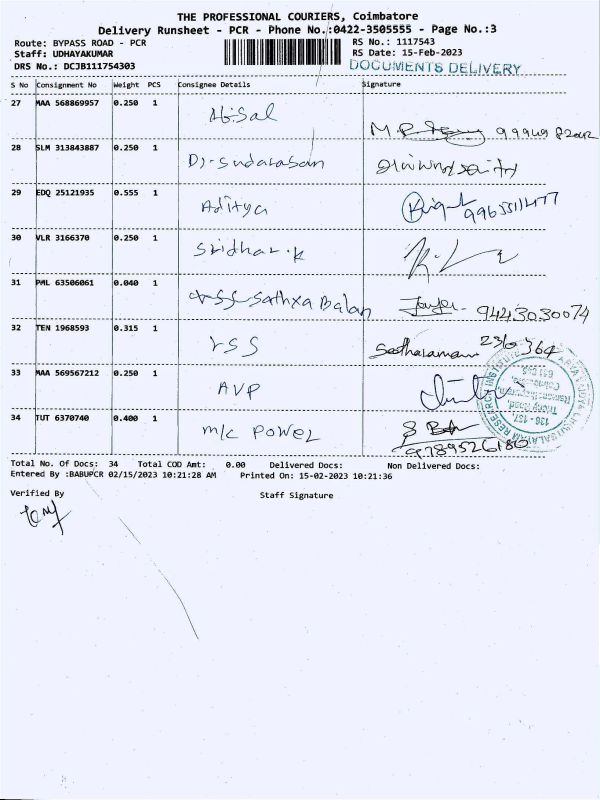 THE PROFESSIONAL COURIERS, Coimbatore
Delivery Runsheet - PCR - Phone No.:0422-3505555 - Page No.:3
Route: BYPASS ROAD - PCR
RS No.: 1117543
Staff: UDHAYAKUMAR
RS Date: 15-Feb-2023
DRS No.: DCJB111754303
DOCUMENTS DELIVERY
S No Consignment No Weight PCS Consignee Details Signature
27 MAA 568869957 0.250 1
28 SLM 313843887 0.250 1 Dr-Sudarasan
29 EDQ 25121935 0.555 1 Aditya
30 VLR 3166370 0.250 1 Sridhar.k
31 PML 63506061 0.040 1 Sathya Balan 9443030074
32 TEN 1968593 0.315 1 rss Seetharaman
33 MAA 569567212 0.250 1 AVP
34 TUT 6370740 0.400 1 m/c Power 9789526180
Total No. Of Docs: 34 Total COD Amt: 0.00 Delivered Docs: Non Delivered Docs:
Entered By :BABUPCR 02/15/2023 10:21:28 AM Printed On: 15-02-2023 10:21:36
Verified By
Staff Signature